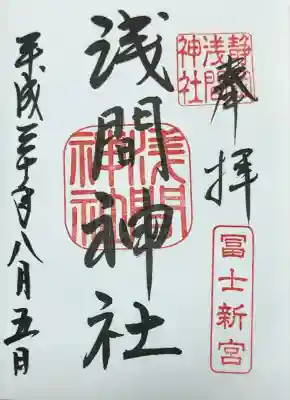 奉拝
静岡浅間神社
冨士新宮
浅間神社
浅間神社
平成三十年八月五日